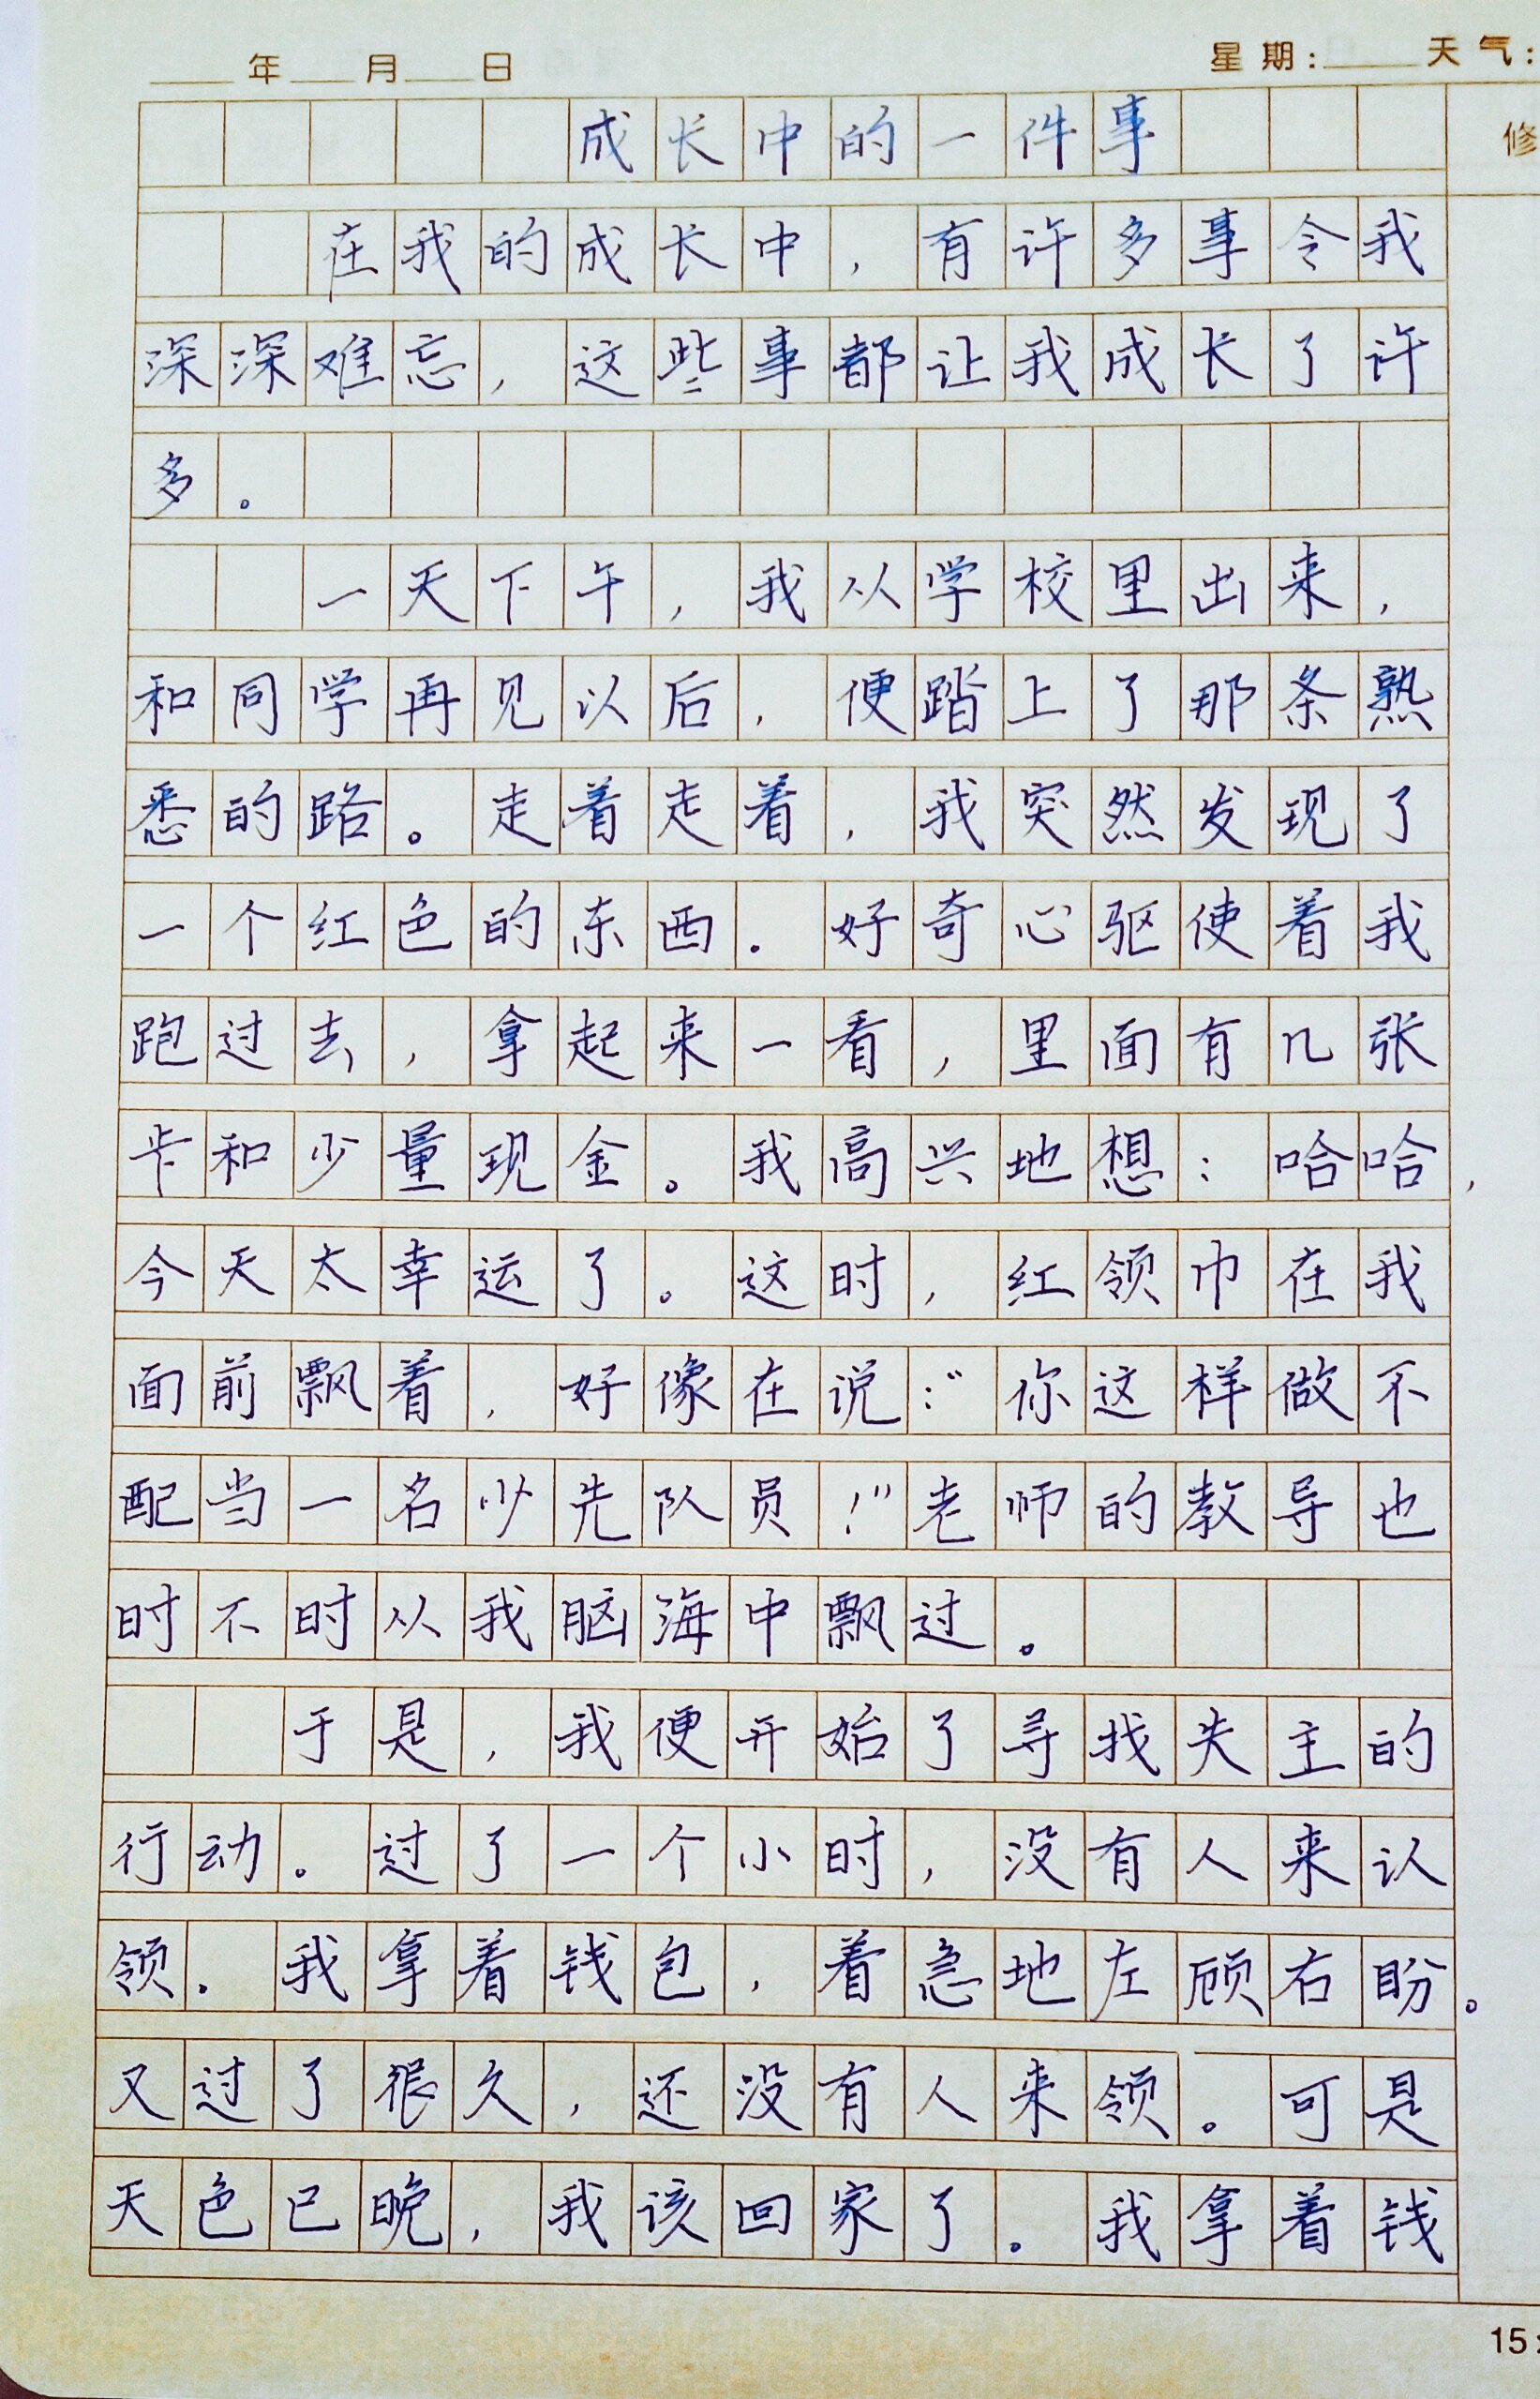 ____年____月____日 星期:____天气:
修
成长中的一件事
在我的成长中，有许多事令我
深深难忘，这些事都让我成长了许
多。
一天下午，我从学校里出来，
和同学再见以后，便踏上了那条熟
悉的路。走着走着，我突然发现了
一个红色的东西.好奇心驱使着我
跑过去，拿起来一看，里面有几张
卡和少量现金。我高兴地想：哈哈，
今天太幸运了。这时，红领巾在我
面前飘着，好像在说：“你这样做不
配当一名少先队员！”老师的教导也
时不时从我脑海中飘过。
于是，我便开始了寻找失主的
行动。过了一个小时，没有人来认
领.我拿着钱包，着急地左顾右盼。
又过了很久，还没有人来领。可是
天色已晚，我该回家了。我拿着钱